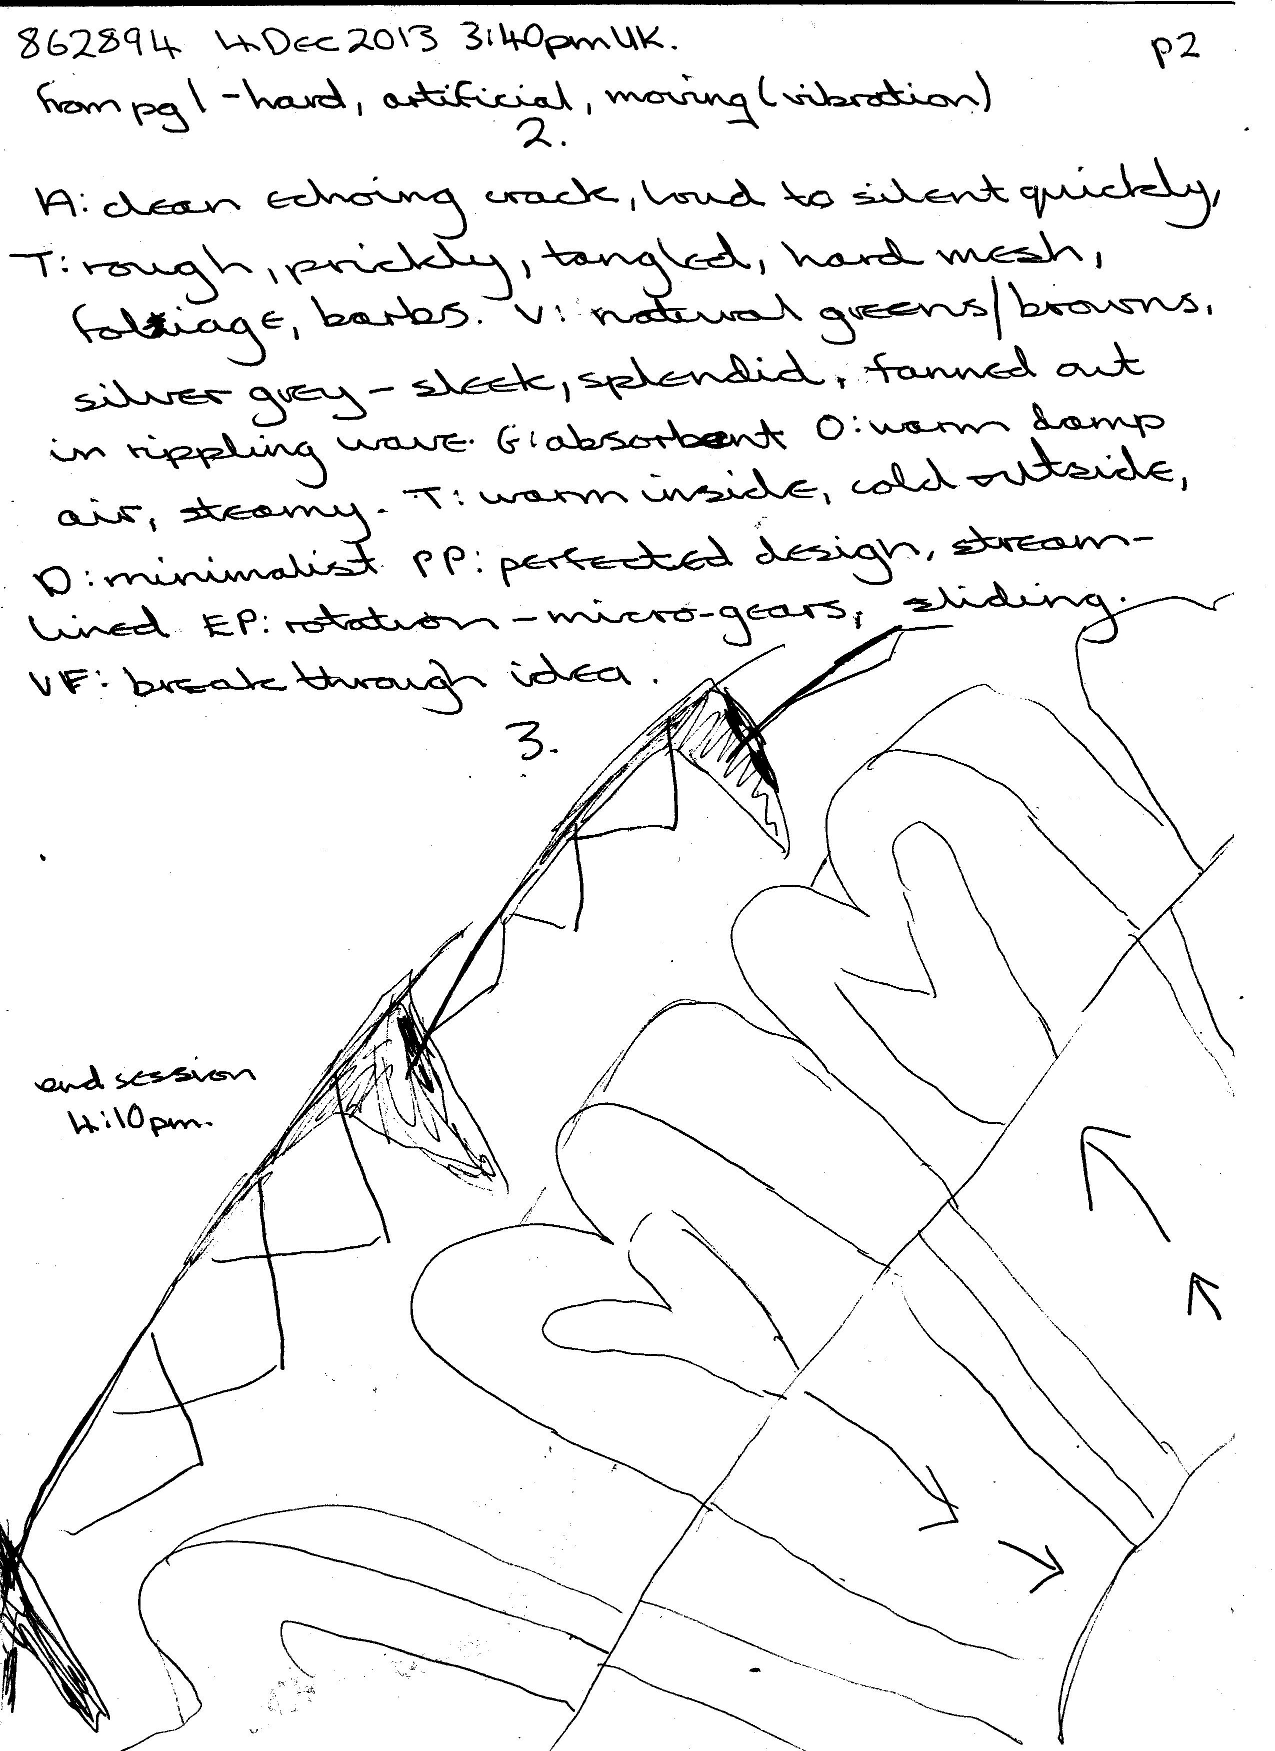 862894 4 Dec 2013 3:40pm UK.
p2
from pg 1 - hard, artificial, moving (vibration)
2.
A: clean echoing crack, loud to silent quickly,
T: rough, prickly, tangled, hard mesh,
foliage, barbs. V: natural greens/browns.
silver grey - sleek, splendid, fanned out
in rippling wave. G: absorbent O: warm damp
air, steamy. T: warm inside, cold outside,
D: minimalist PP: perfected design, stream-
lined EP: rotation - micro-gears, sliding.
VF: breakthrough idea.
3.
end session
4:10pm.